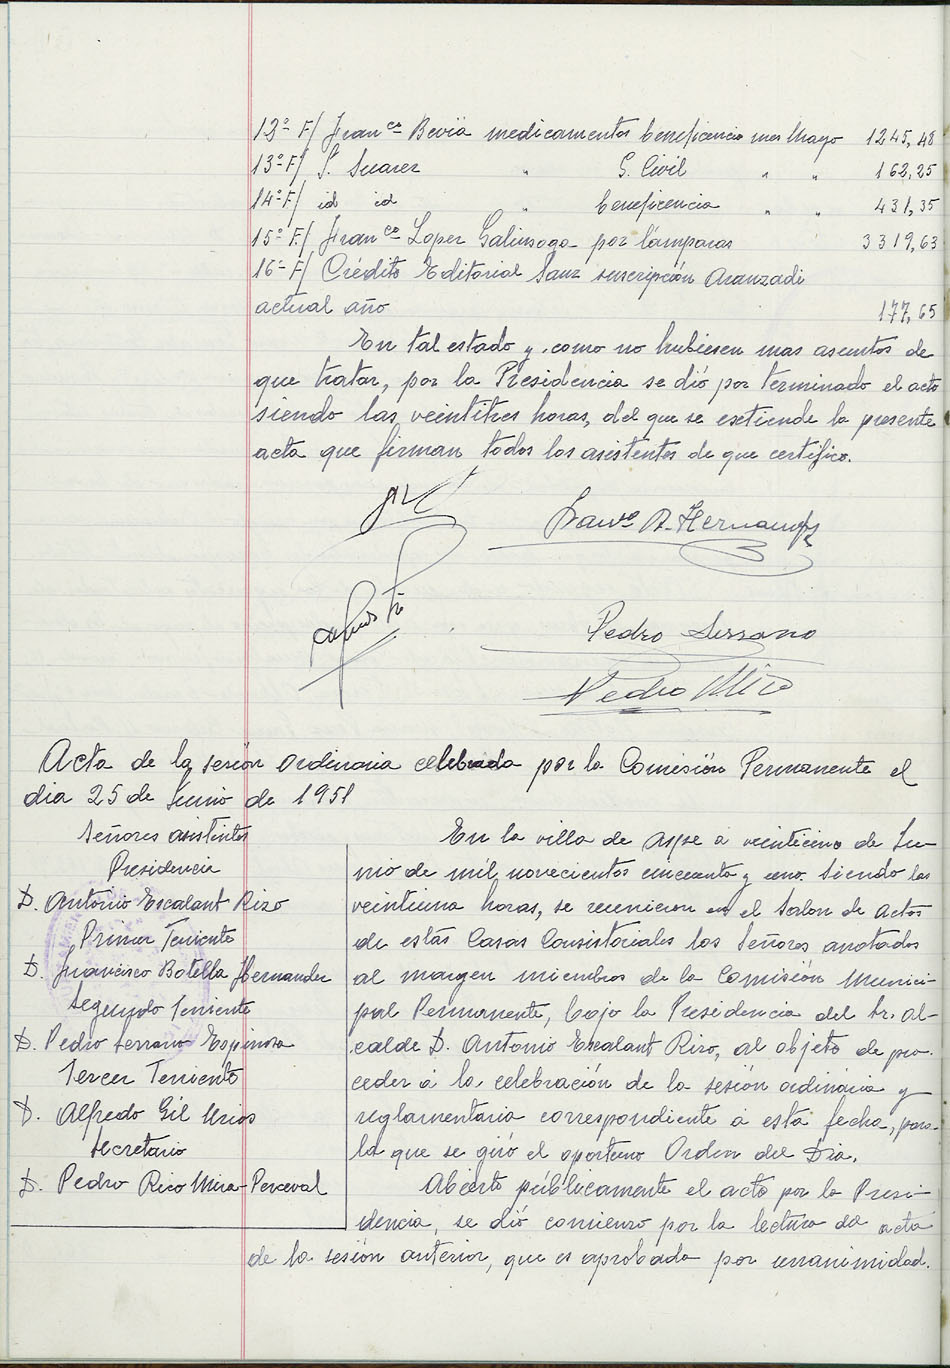 12º F/ Franco Beviá medicamentos beneficencia mes Mayo 1245,48
13º F/ S. Suarez " G. Civil " " 162,25
14º F/ id id " beneficencia " " 431,35
15º F/ Franco Lopez Galinsoga por lámparas 3319,63
16º F/ Crédito Editorial Sanz suscripción Aranzadi
actual año 177,65
En tal estado y como no hubiesen mas asuntos de
que tratar, por la Presidencia se dió por terminado el acto
siendo las veintitres horas, del que se extiende la presente
acta que firman todos los asistentes de que certifico.
Franco B. Hernandez
Pedro Serrano
Pedro Rico
Acta de la sesión ordinaria celebrada por la Comisión Permanente el
dia 25 de Junio de 1951
Señores asistentes
Presidencia
D. Antonio Escalant Rizo
Primer Teniente
D. Francisco Botella Hernandez
Segundo Teniente
D. Pedro Serrano Espinosa
Tercer Teniente
D. Alfredo Gil Urios
Secretario
D. Pedro Rico Mira-Perceval
En la villa de Aspe a veinticinco de Ju-
nio de mil novecientos cincuenta y uno. Siendo las
veintiuna horas, se reunieron en el Salon de actos
de estás Casas Consistoriales los Señores anotados
al margen miembros de la Comisión Munici-
pal Permanente, bajo la Presidencia del Sr. Al-
calde D. Antonio Escalant Rizo, al objeto de pro-
ceder á la celebración de la sesión ordinaria y
reglamentaria correspondiente a esta fecha, para
la que se giró el oportuno Orden del Dia.
Abierto públicamente el acto por la Presi-
dencia, se dió comienzo por la lectura del acta
de la sesión anterior, que es aprobada por unanimidad.